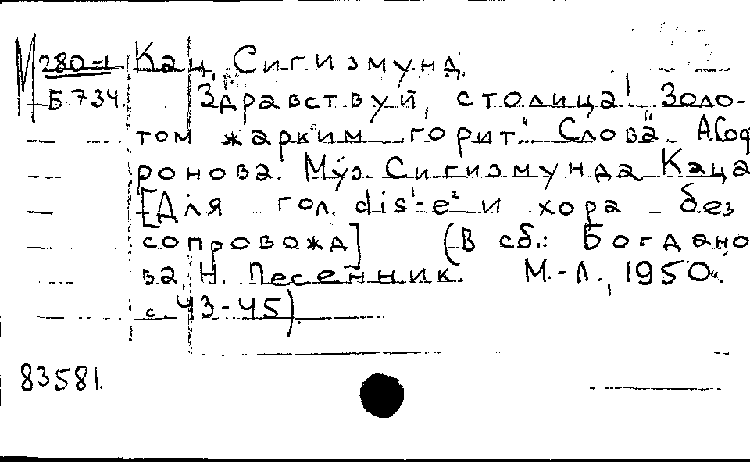 М 280-1 Кац, Сигизмунд.
Б 734. Здравствуй, столица! "Золо-
том жарким горит." Слова А. Соф
ронова. Муз. Сигизмунда Каца
[Для гол. dis¹-e² и хора без
сопровожд] (В сб.: Богдано
ва, Н. Песенник. М.-Л., 1950.
с. 43-45).
83581.